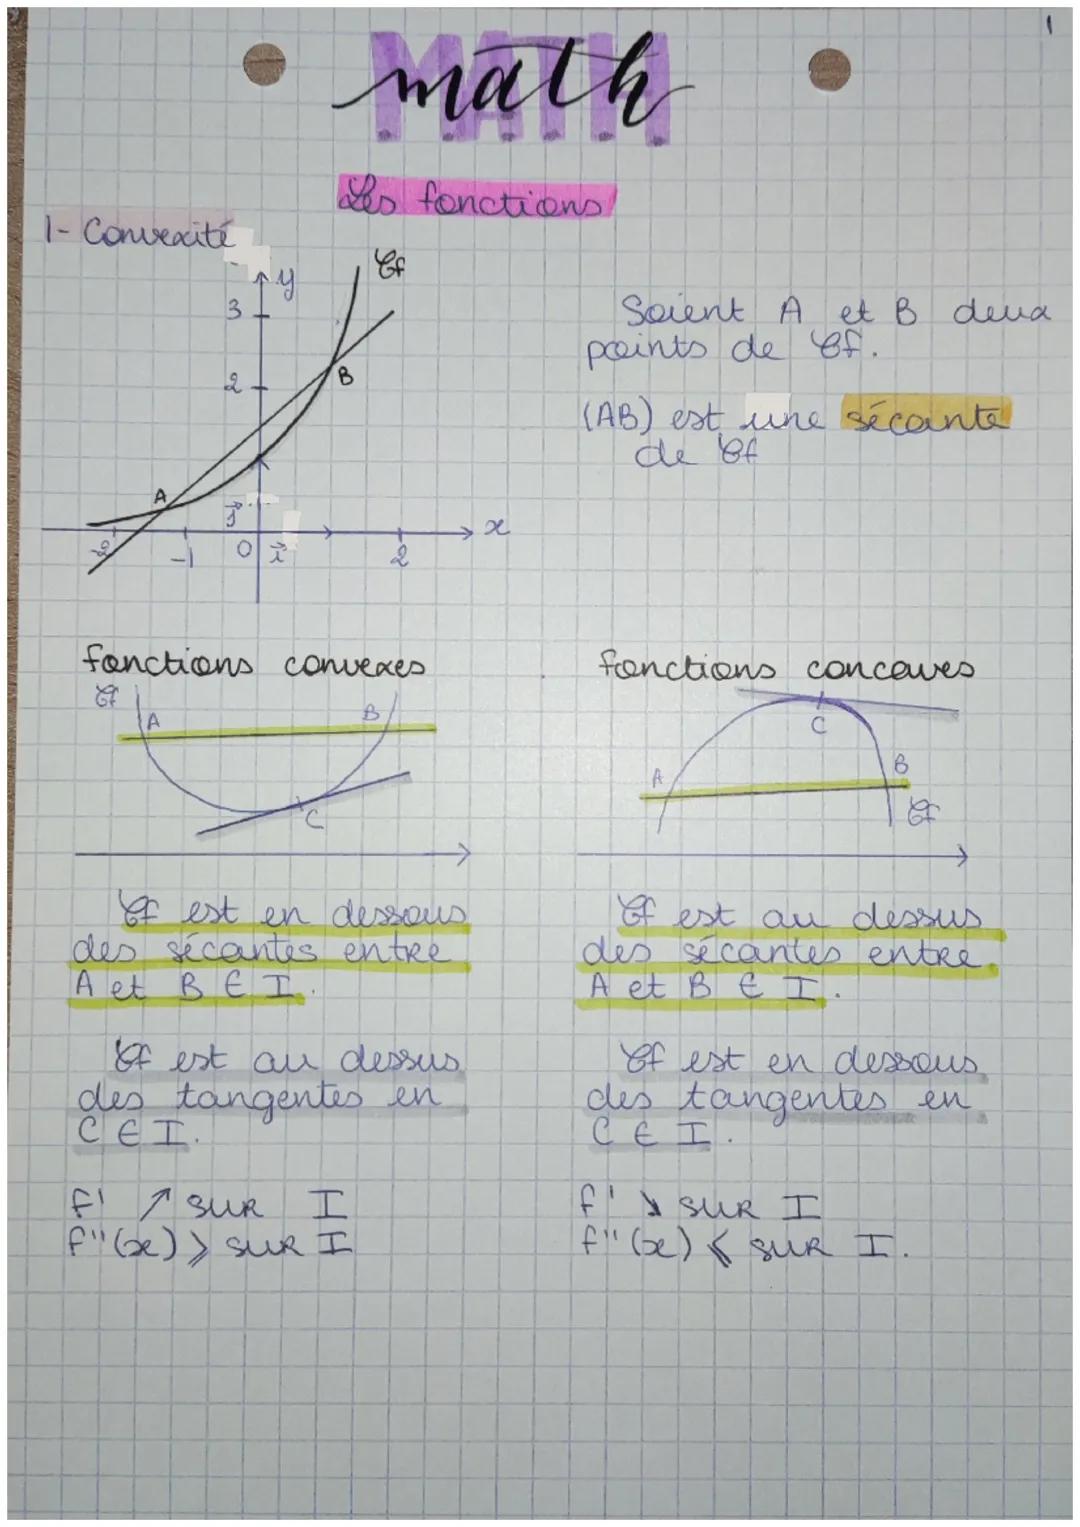 1
MATH
math
Les fonctions
1- Convexité
y
Cf
3
2
B
A
j
x
-2
-1
O
i
2
Soient A et B deux
points de Cf.
(AB) est une sécante
de Cf
fonctions convexes
Cf
A
B
C
Cf est en dessous
des sécantes entre
A et B ∈ I.
Cf est au dessus
des tangentes en
C ∈ I.
f' ↗ sur I
f''(x) ⩾ sur I
fonctions concaves
C
A
B
Cf
Cf est au dessus
des sécantes entre
A et B ∈ I.
Cf est en dessous
des tangentes en
C ∈ I.
f' ↘ sur I
f''(x) ⩽ sur I.